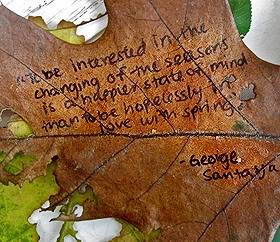 "To be interested in the
changing of the seasons
is a happier state of mind
than to be hopelessly in
love with spring."
- George
Santayana